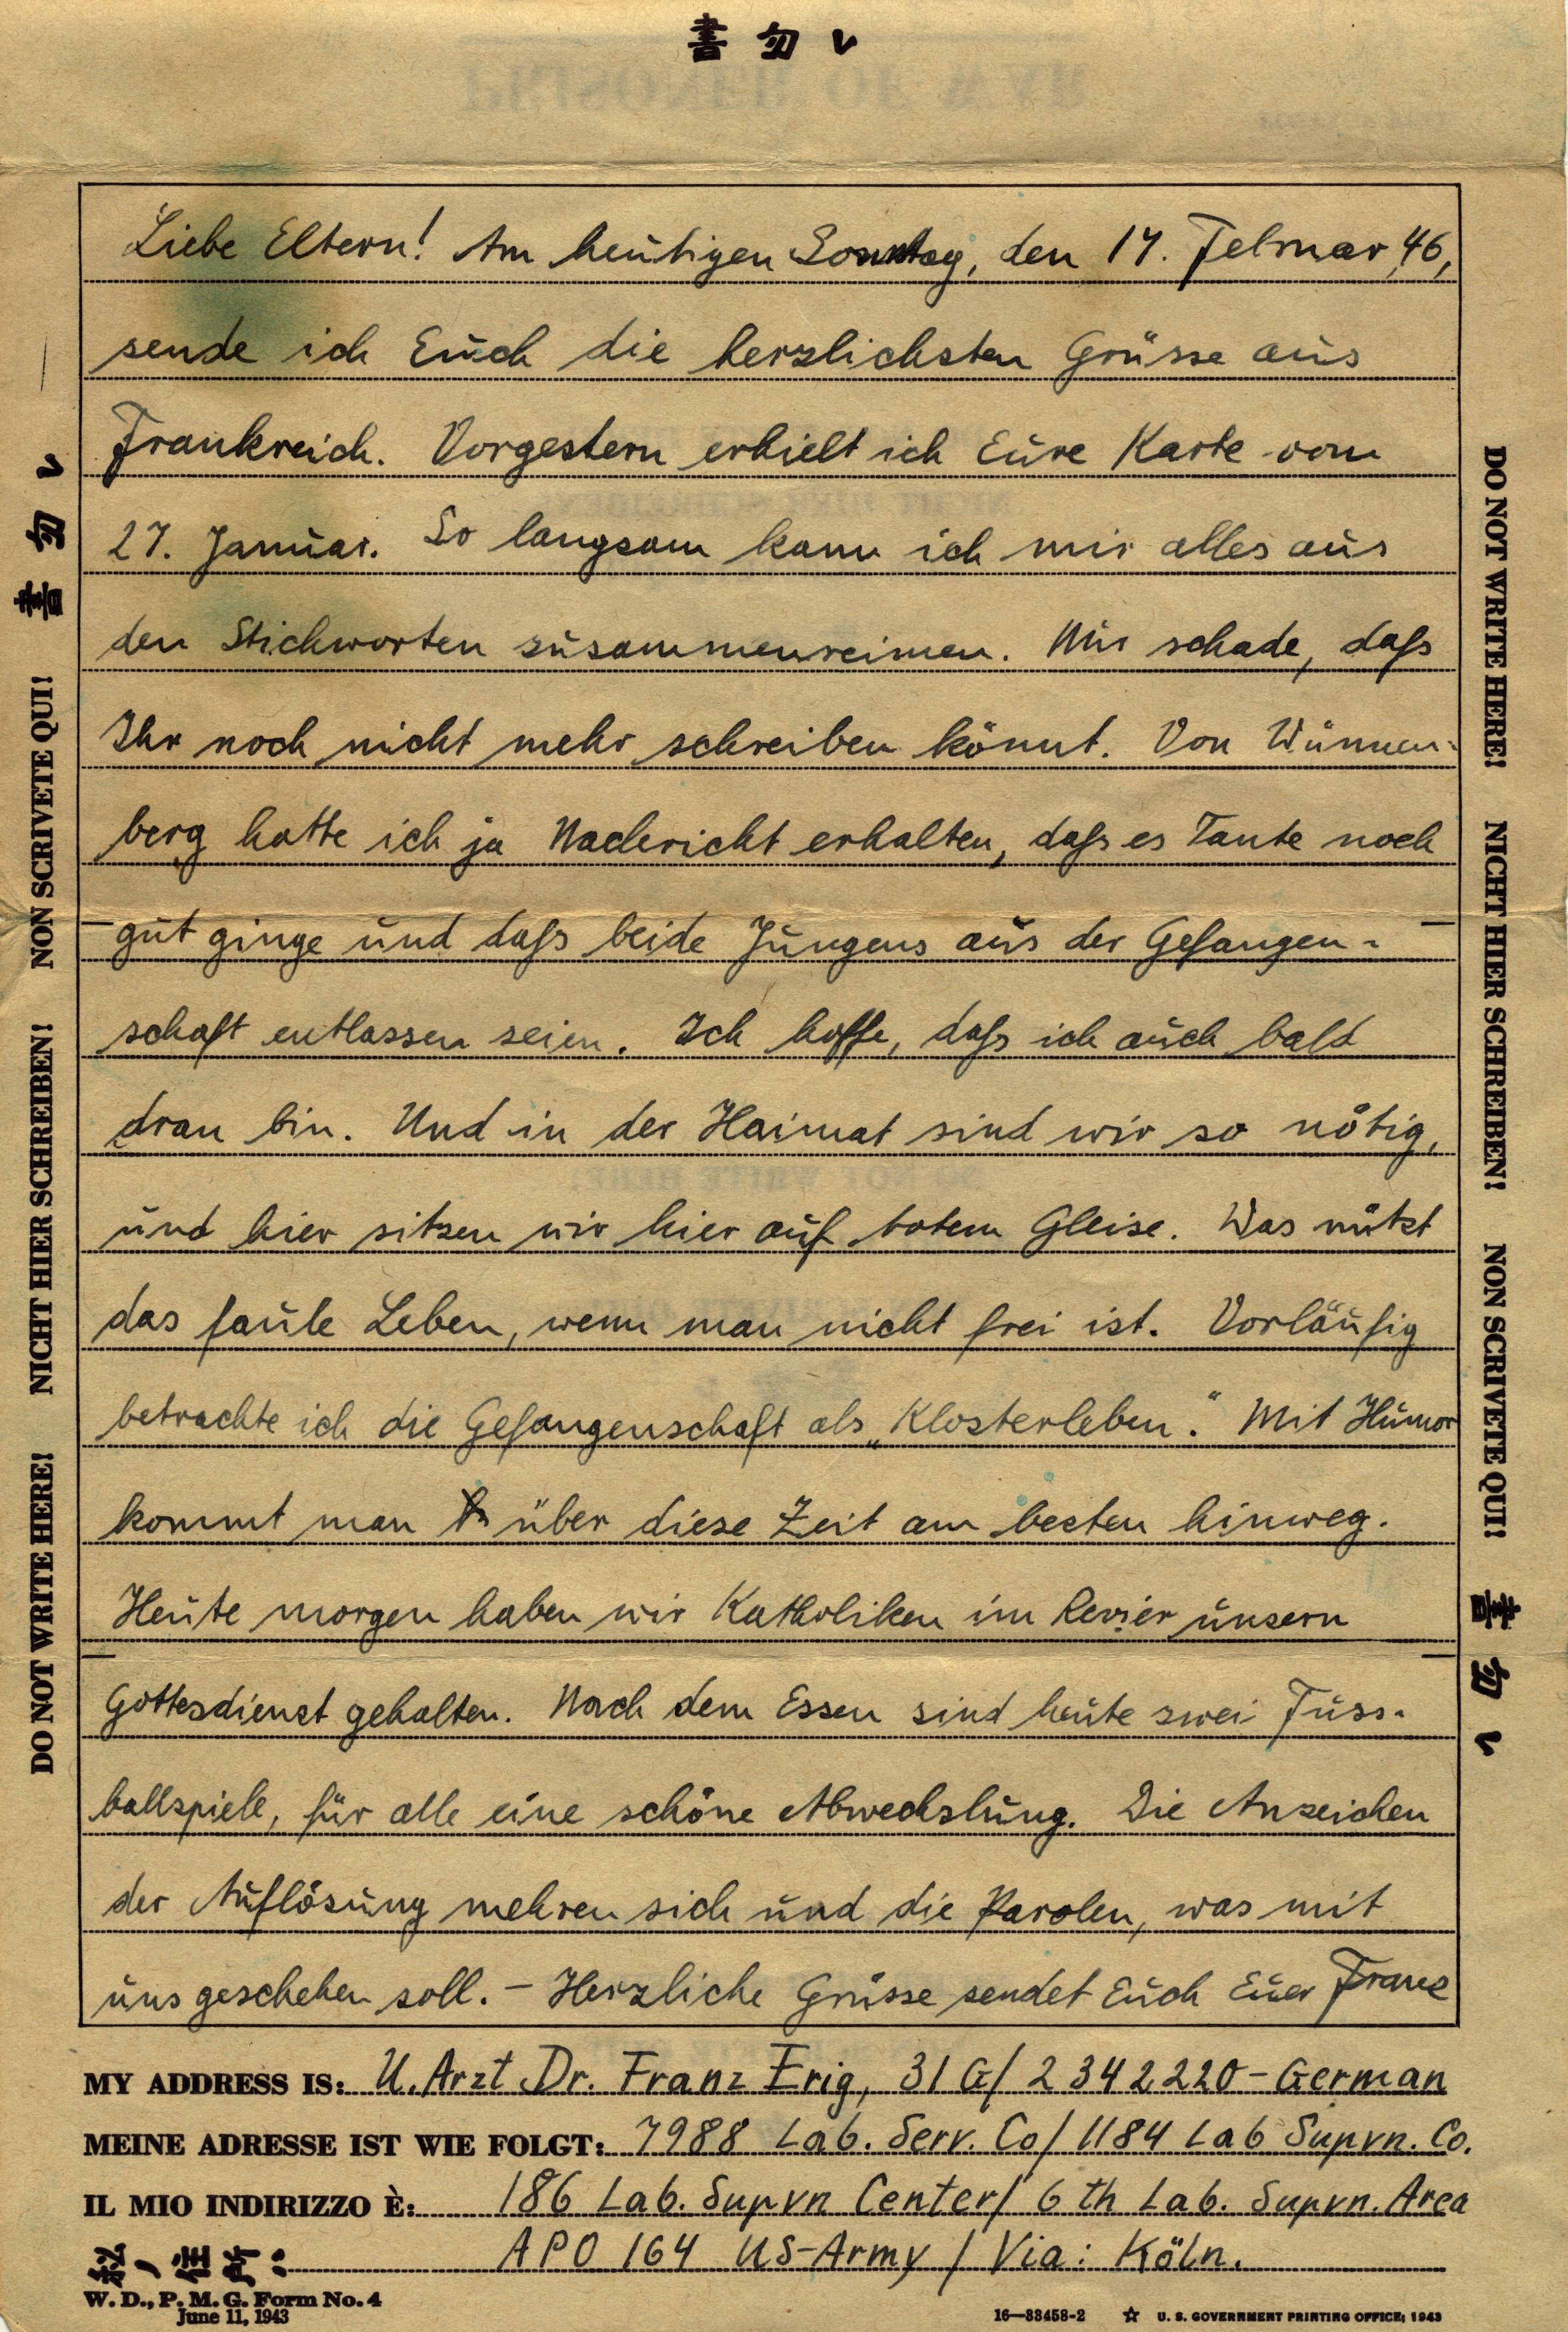 書勿レ
Liebe Eltern! Am heutigen Sonntag, den 17. Februar 46,
sende ich Euch die herzlichsten Grüsse aus
Frankreich. Vorgestern erhielt ich Eure Karte vom
27. Januar. So langsam kann ich mir alles aus
den Stichworten zusammenreimen. Nur schade, daß
Ihr noch nicht mehr schreiben könnt. Von Wünnen-
berg hatte ich ja Nachricht erhalten, daß es Tante noch
gut ginge und daß beide Jungens aus der Gefangen-
schaft entlassen seien. Ich hoffe, daß ich auch bald
dran bin. Und in der Haimat sind wir so nötig,
und hier sitzen wir hier auf totem Gleise. Was nützt
das faule Leben, wenn man nicht frei ist. Vorläufig
betrachte ich die Gefangenschaft als „Klosterleben“. Mit Humor
kommt man über diese Zeit am besten hinweg.
Heute morgen haben wir Katholiken im Revier unsern
Gottesdienst gehalten. Nach dem Essen sind heute zwei Fuss-
ballspiele, für alle eine schöne Abwechslung. Die Anzeichen
der Auflösung mehren sich und die Parolen, was mit
uns geschehen soll. – Herzliche Grüsse sendet Euch Euer Franz
MY ADDRESS IS: U. Arzt Dr. Franz Erig, 31 G/ 2 342220 - German
MEINE ADRESSE IST WIE FOLGT: 7988 Lab. Serv. Co/ 1184 Lab Supvn. Co.
IL MIO INDIRIZZO È: 186 Lab. Supvn Center/ 6 th Lab. Supvn. Area
私ノ住所: APO 164 US-Army / Via: Köln.
W. D., P. M. G. Form No. 4
June 11, 1943
16—33458-2 ☆ U. S. GOVERNMENT PRINTING OFFICE: 1943
DO NOT WRITE HERE! NICHT HIER SCHREIBEN! NON SCRIVETE QUI! 書勿レ
DO NOT WRITE HERE! NICHT HIER SCHREIBEN! NON SCRIVETE QUI! 書勿レ